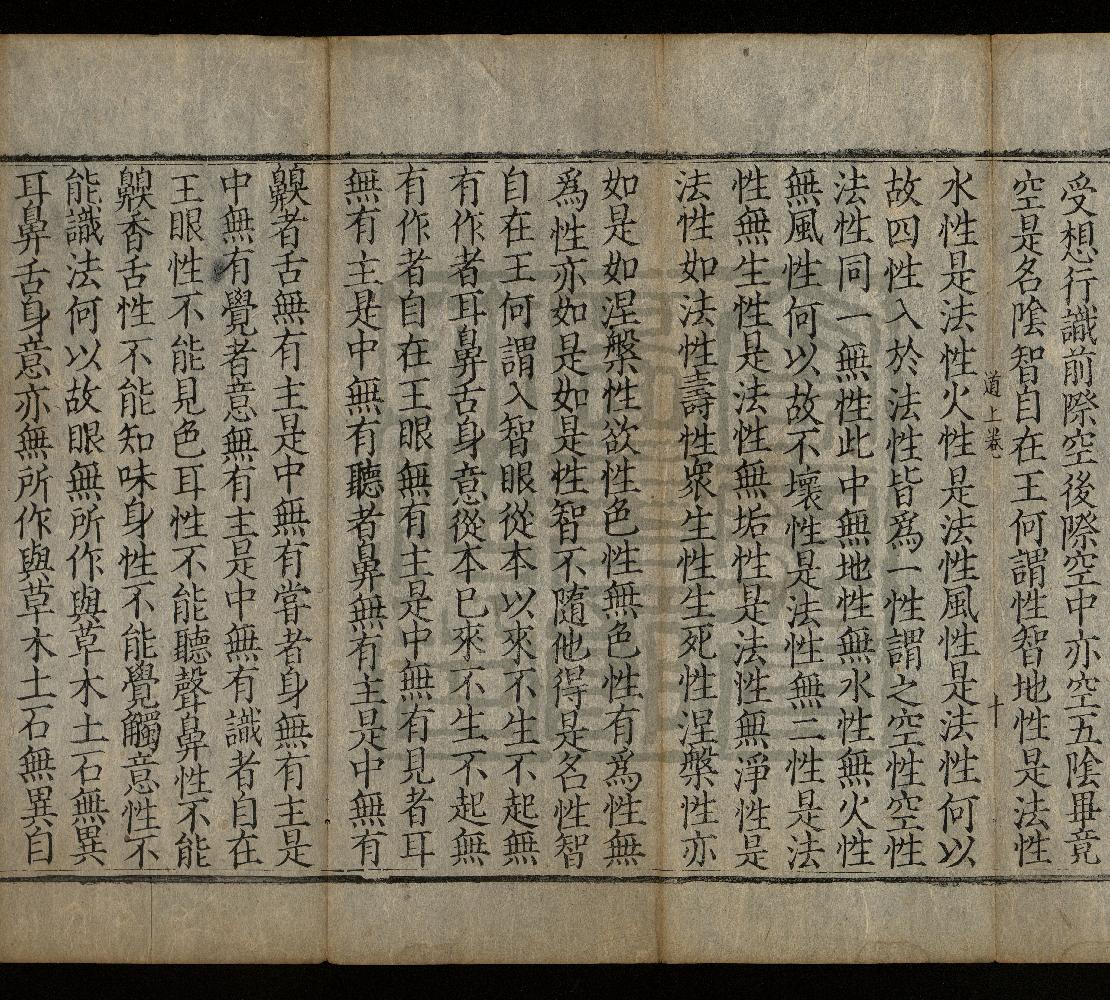 受想行識前際空後際空中亦空五陰畢竟
空是名陰智自在王何謂性智地性是法性
道上卷 十
水性是法性火性是法性風性是法性何以
故四性入於法性皆爲一性謂之空性空性
法性同一無性此中無地性無水性無火性
無風性何以故不壞性是法性無二性是法
性無生性是法性無垢性是法性無淨性是
法性如法性壽性衆生性生死性涅槃性亦
如是如涅槃性欲性色性無色性有爲性無
爲性亦如是如是性智不隨他得是名性智
自在王何謂入智眼從本以來不生不起無
有作者耳鼻舌身意從本已來不生不起無
有作者自在王眼無有主是中無有見者耳
無有主是中無有聽者鼻無有主是中無有
齅者舌無有主是中無有嘗者身無有主是
中無有覺者意無有主是中無有識者自在
王眼性不能見色耳性不能聽聲鼻性不能
齅香舌性不能知味身性不能覺觸意性不
能識法何以故眼無所作與草木土石無異
耳鼻舌身意亦無所作與草木土石無異自